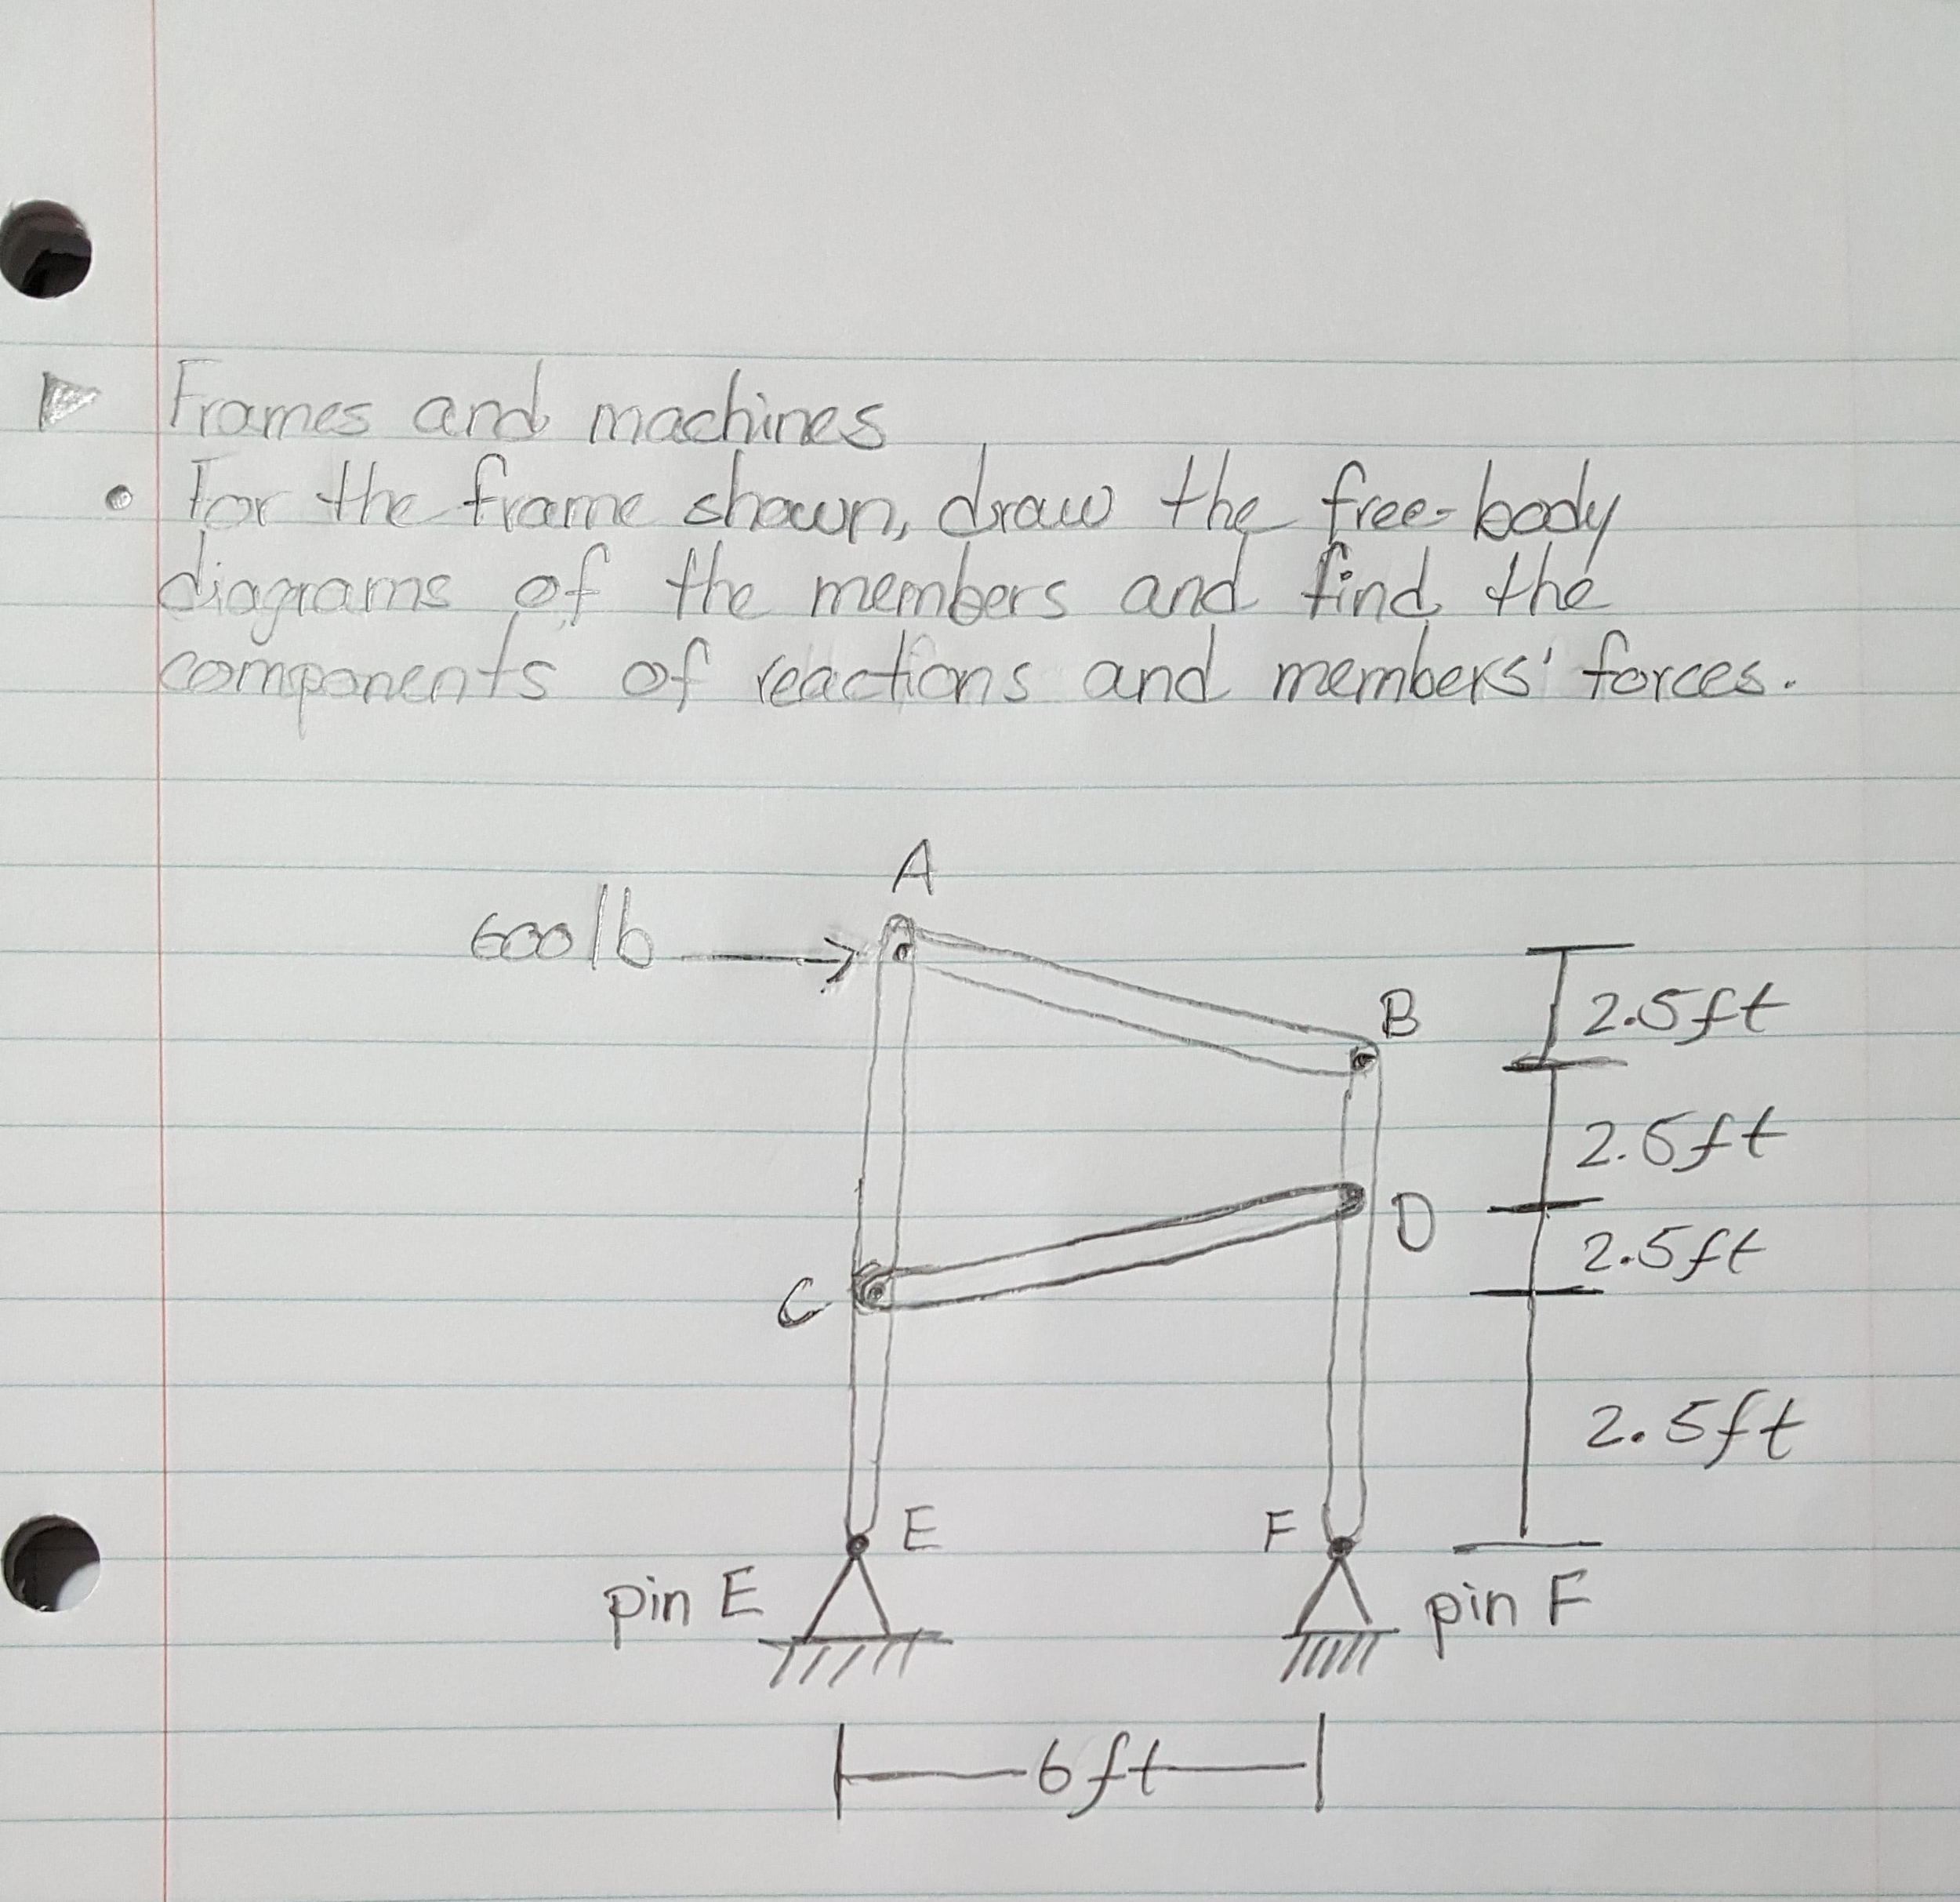 Frames and machines
• For the frame shown, draw the free-body
diagrams of the members and find the
components of reactions and members' forces.
A
600 lb
B
2.5ft
2.5ft
D
2.5ft
C
2.5ft
E
F
pin E
pin F
6 ft